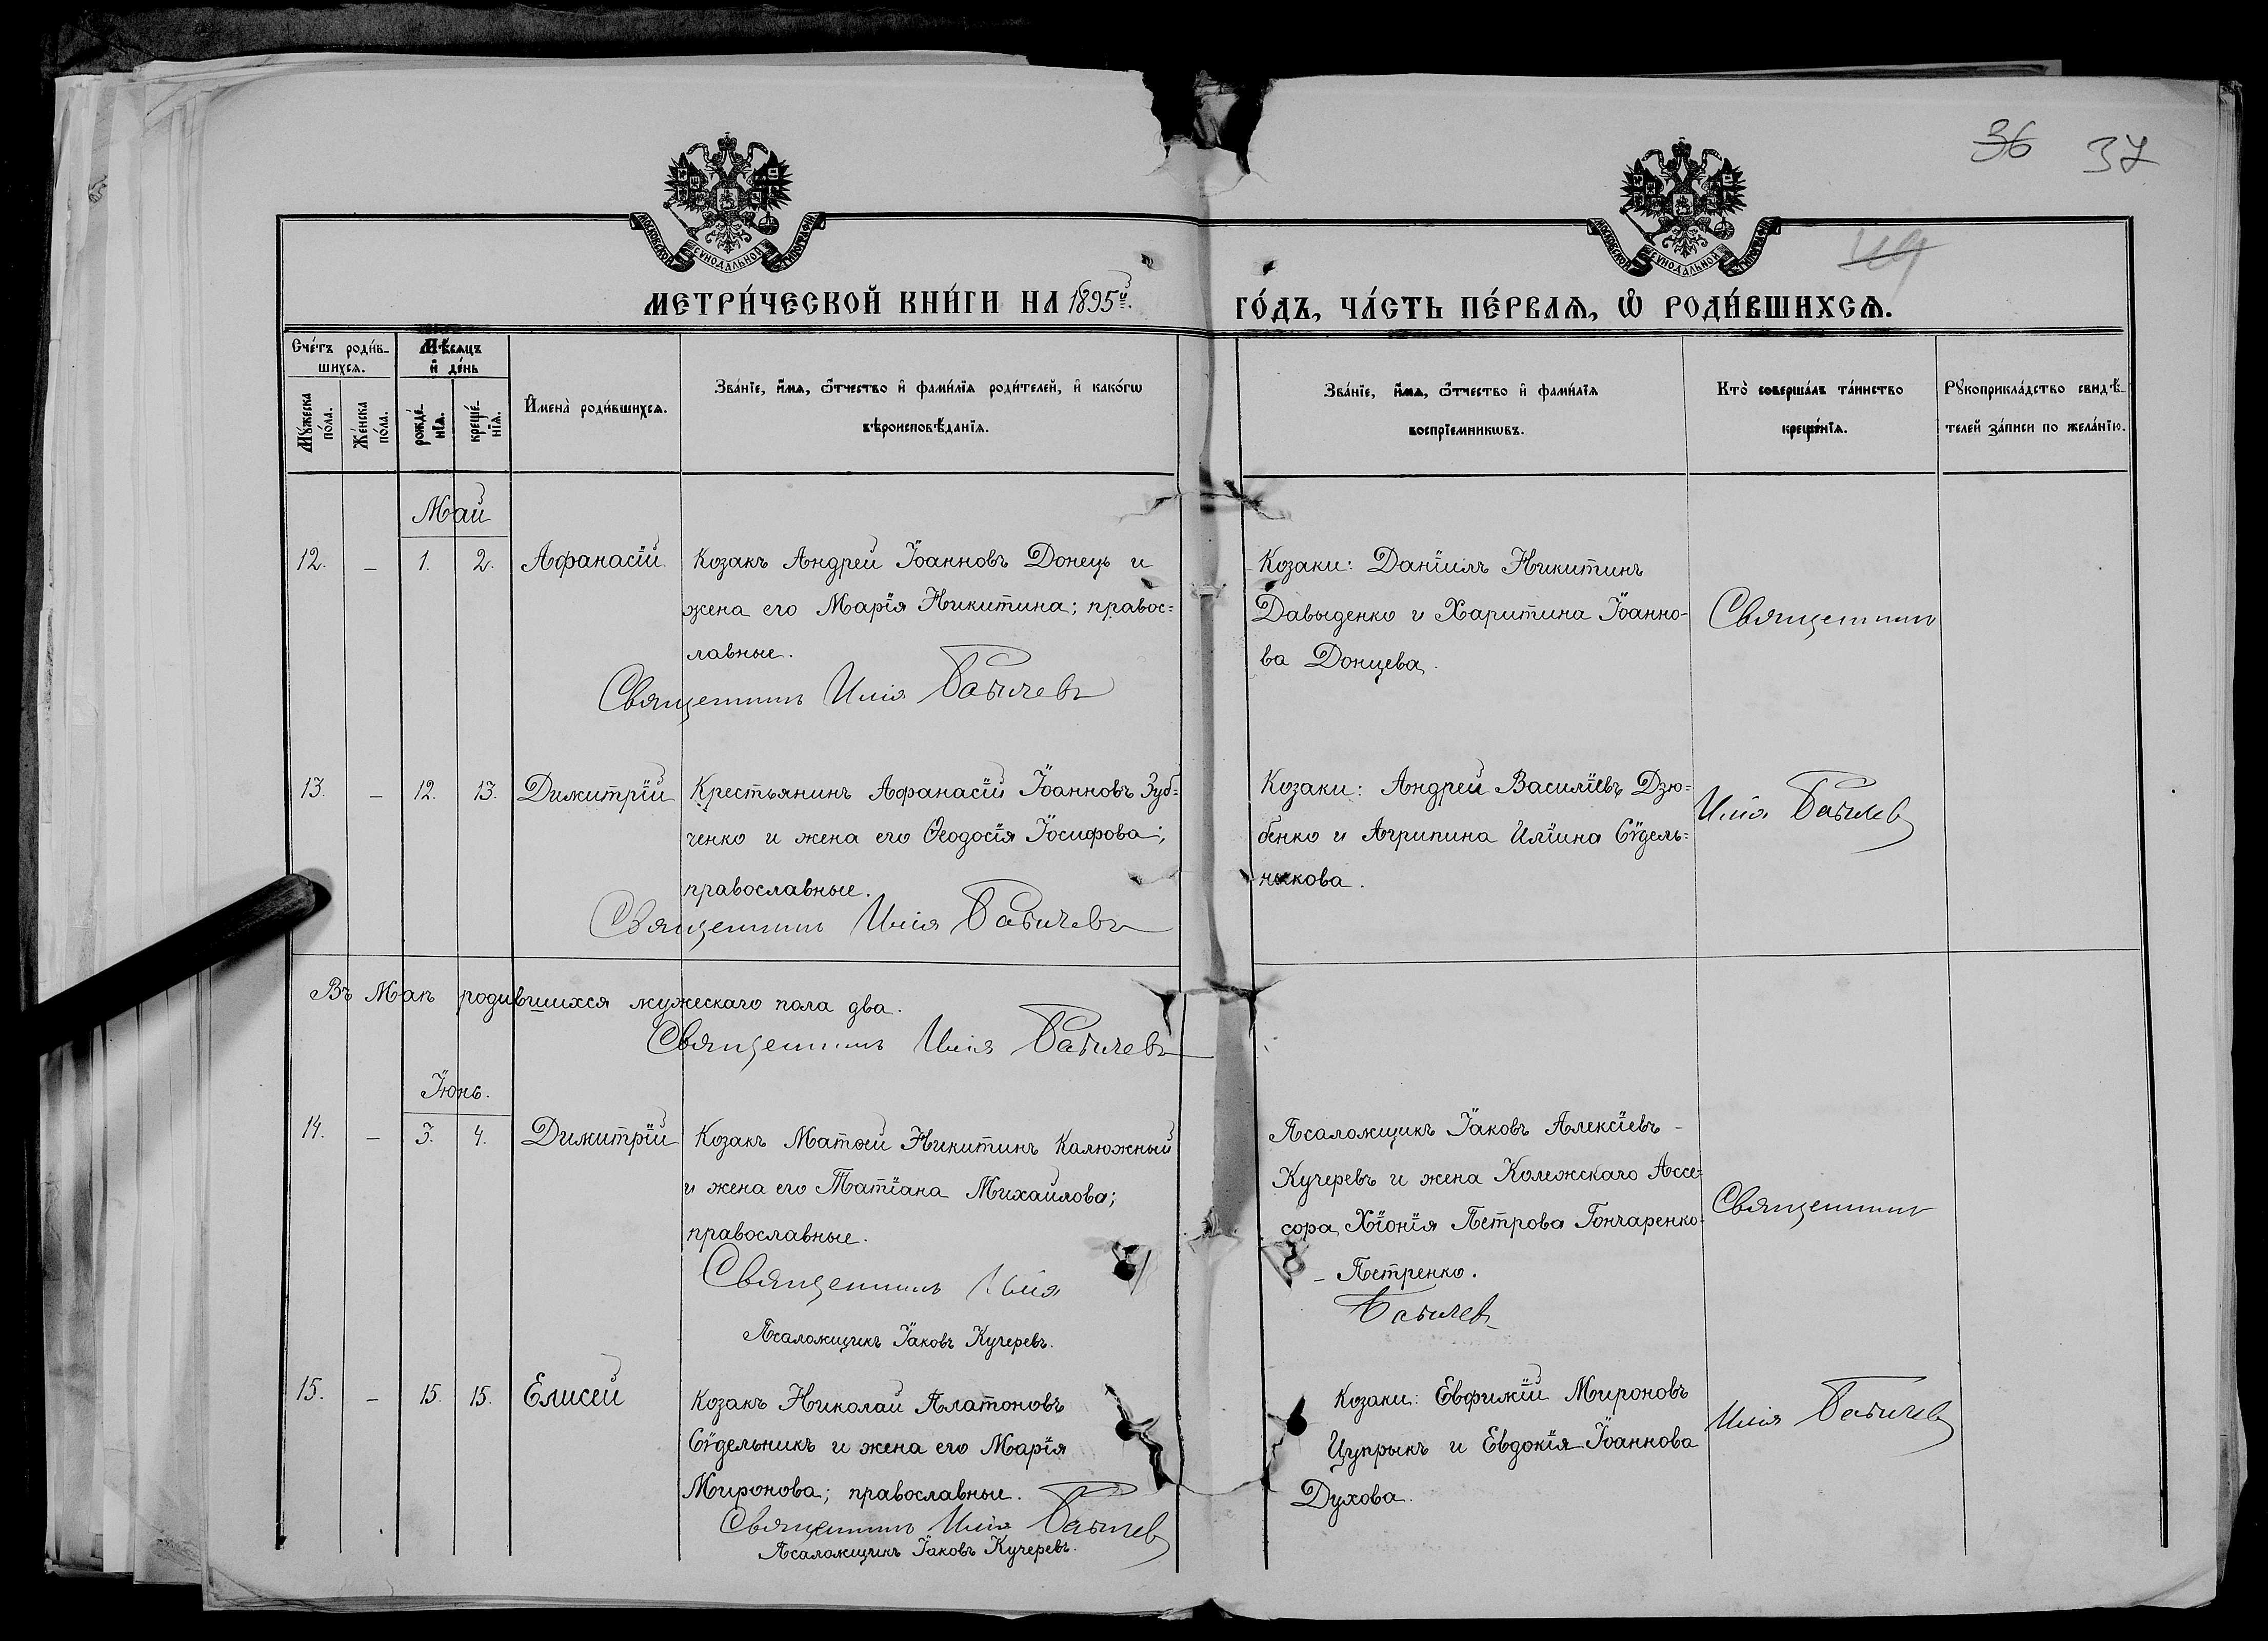 36 37
МОСКОВСКОЙ СѴНОДАЛЬНОЙ ТИПОГРАФІИ
МОСКОВСКОЙ СѴНОДАЛЬНОЙ ТИПОГРАФІИ
МЕТРИ́ЧЕСКОЙ КНИ́ГИ НА 1895й.
ГО́ДЪ, ЧА́СТЬ ПЕ́РВАЯ, Ѡ҆ РОДИ́ВШИХСЯ.
Сче́тъ роди́в-
шихся.
Мѣ́сяцъ
и҆ де́нь
Му́жеска
по́ла.
Же́нска
по́ла.
рожде́-
нїя.
креще́-
нїя.
И҆мена̀ роди́вшихся.
Зва́нїе, и҆́мя, ѻ҆́тчество и҆ фами́лїя роди́телей, и҆ како́гѡ
вѣроисповѣ́данїя.
Зва́нїе, и҆́мя, ѻ҆́тчество и҆ фами́лїя
воспрїе́мникѡвъ.
Кто̀ соверша́лъ та́инство
креще́нїя.
Рꙋкоприкла́дство свидѣ́-
телей за́писи по жела́нїю.
Май
12. – 1. 2. Афанасій.
Козакъ Андрей Іоанновъ Донецъ и
жена его Марія Никитина; правос=
лавные.
Священникъ Илія Бабичевъ
Козаки: Даніилъ Никитинъ
Давыденко и Харитина Іоанно-
ва Донцева.
Священникъ
13. – 12. 13. Димитрій
Крестьянинъ Афанасій Іоанновъ Зуб=
ченко и жена его Ѳеодосія Іосифова;
православные.
Священникъ Илія Бабичевъ
Козаки: Андрей Василіевъ Дзю=
бенко и Агрипина Иліина Сѣдель=
никова.
Илія Бабичевъ
Въ Маѣ родившихся мужескаго пола два.
Священникъ Илія Бабичевъ
Іюнь.
14. – 3. 4. Димитрій
Козакъ Матѳей Никитинъ Калюжный
и жена его Татіана Михайлова;
православные.
Священникъ Илія
Псаломщикъ Іаковъ Кучеревъ.
Псаломщикъ Іаковъ Алексіевъ –
Кучеревъ и жена Колежскаго Ассе-
сора, Хіонія Петрова Гончаренко-
– Петренко.
Бабичевъ
Священникъ
15. – 15. 15. Елисей
Козакъ Николай Платоновъ
Сѣдельникъ и жена его Марія
Миронова; православные.
Священникъ Илія Бабичевъ
Псаломщикъ Іаковъ Кучеревъ.
Козаки: Евфимій Мироновъ
Цупрыкъ и Евдокія Іоаннова
Духова.
Илія Бабичевъ